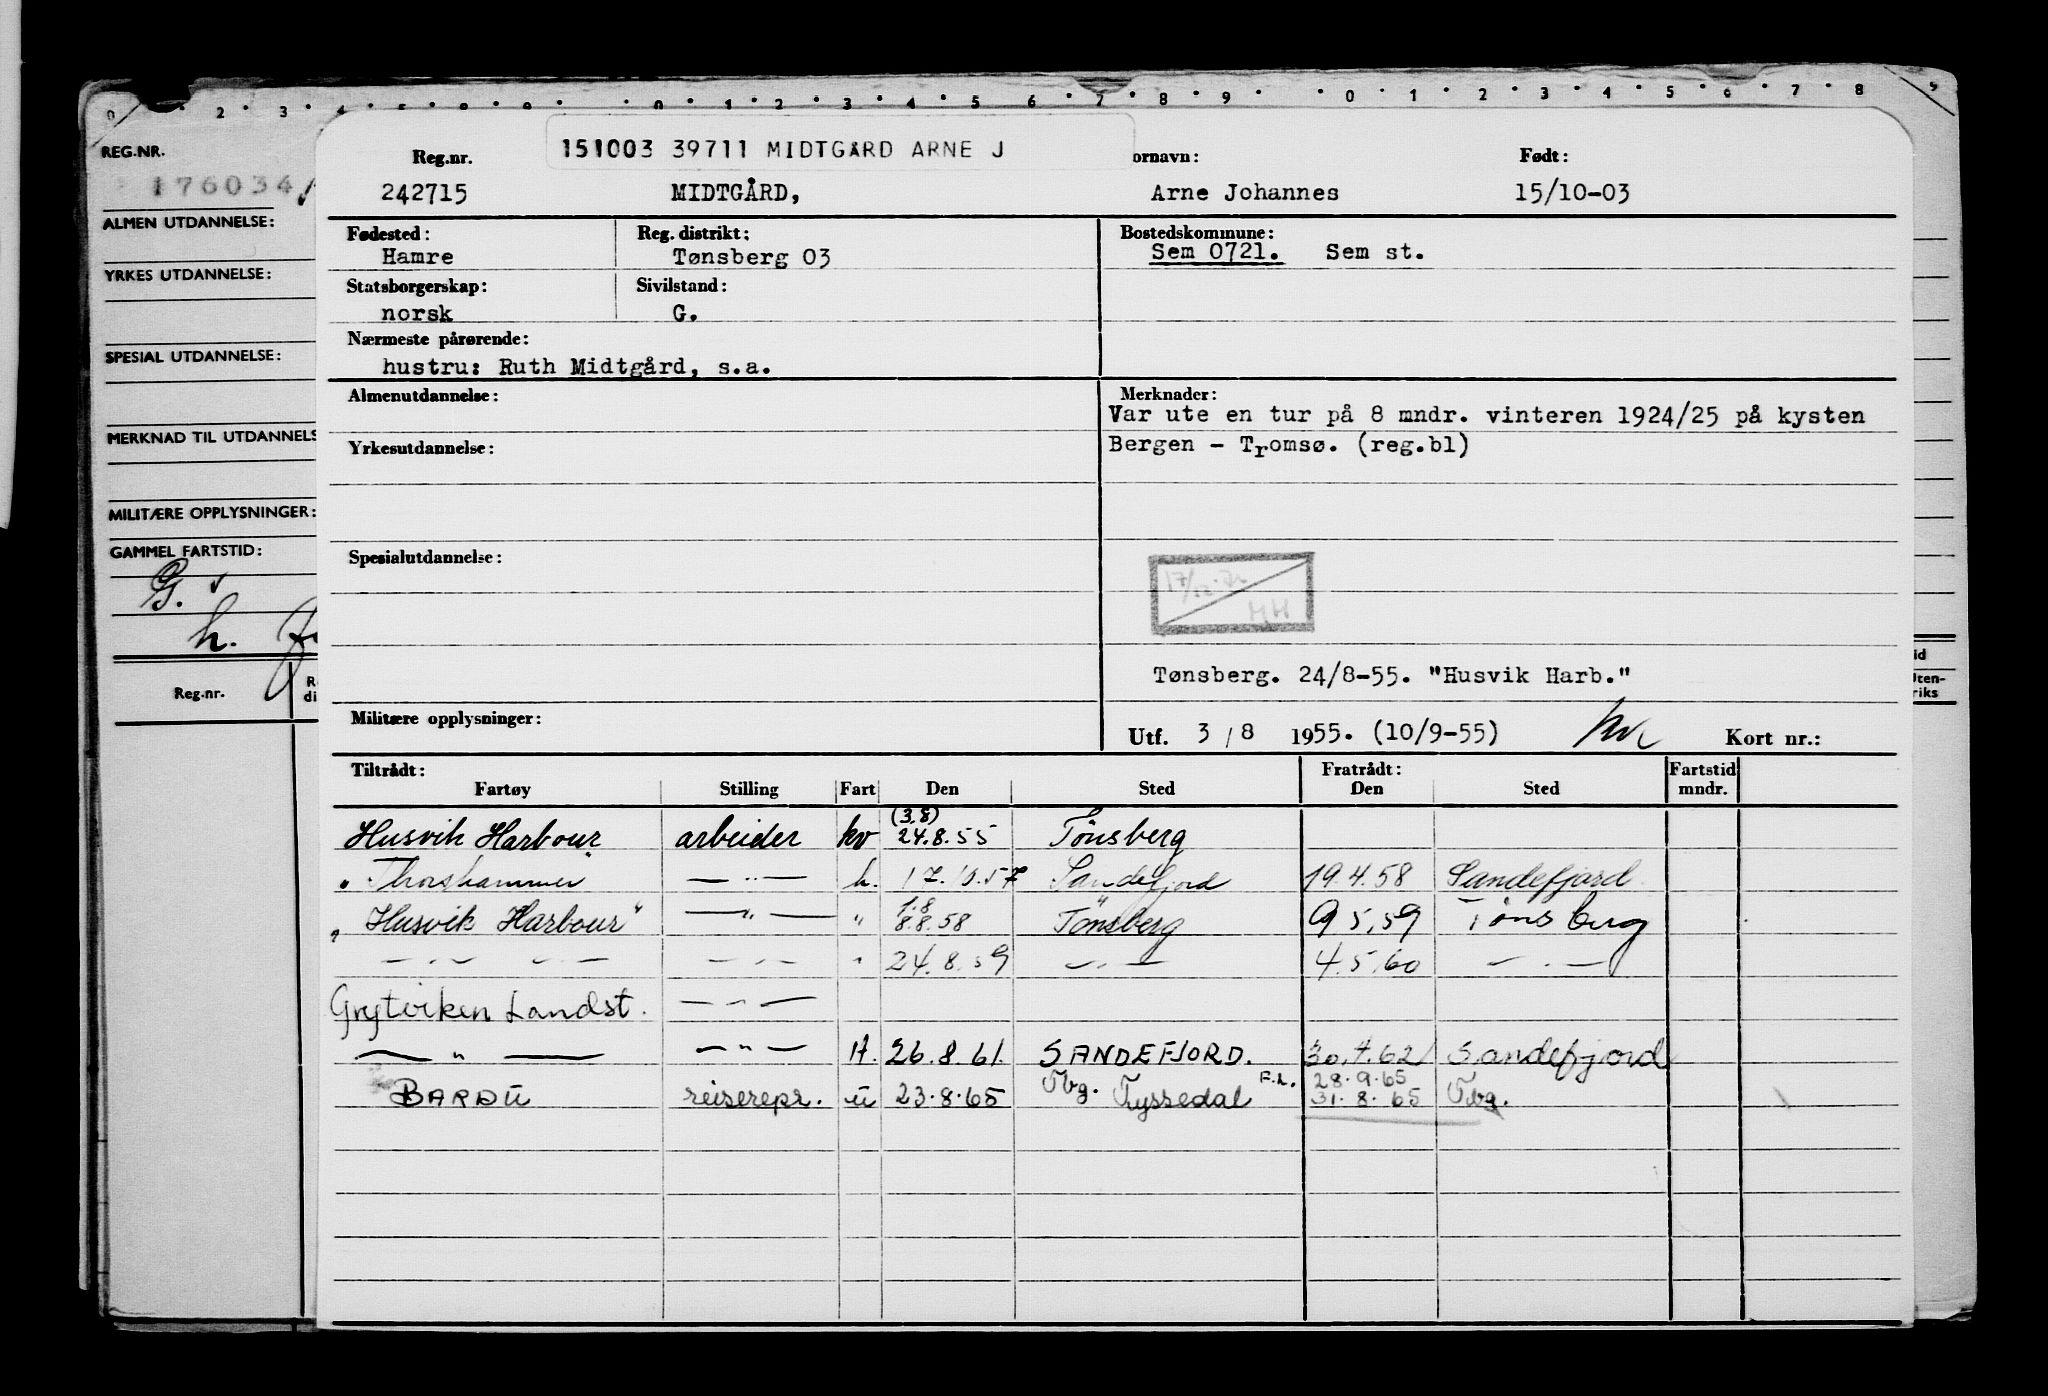 REG.NR.
176034
ALMEN UTDANNELSE:
YRKES UTDANNELSE:
SPESIAL UTDANNELSE:
MERKNAD TIL UTDANNELS
MILITÆRE OPPLYSNINGER:
GAMMEL FARTSTID:
G.
h.
Reg.nr.
151003 39711 MIDTGARD ARNE J
Reg.nr. ornavn: Født:
242715 MIDTGÅRD, Arne Johannes 15/10-03
Fødested: Reg. distrikt: Bostedskommune:
Hamre Tønsberg 03 Sem 0721. Sem st.
Statsborgerskap: Sivilstand:
norsk G.
Nærmeste pårørende:
hustru: Ruth Midtgård, s.a.
Almenutdannelse: Merknader:
Var ute en tur på 8 mndr. vinteren 1924/25 på kysten
Yrkesutdannelse: Bergen - Tromsø. (reg.bl)
Spesialutdannelse:
17/12
HH
Tønsberg. 24/8-55. "Husvik Harb."
Militære opplysninger:
Utf. 3/8 1955. (10/9-55) Kort nr.:
Tiltrådt: Fratrådt: Fartstid
Fartøy Stilling Fart Den Sted Den Sted mndr.
(3.8)
Husvik Harbour arbeider kv 24.8.55 Tönsberg
"Thorshammer" —"— h. 17.10.57 Sandefjord 19.4.58 Sandefjord
1.8
"Husvik Harbour" —"— " 8.8.58 Tönsberg 9.5.59 Tönsberg
—"— —"— —"— " 24.8.59 —"— 4.5.60 —"—
Grytviken Landst. —"—
—"— —"— H. 26.8.61. SANDEFJORD. 30.4.62 Sandefjord
28.9.65
BARDU reiserepr. u 23.8.65 Tbg. Tyssedal F.L. 31.8.65 Tbg.